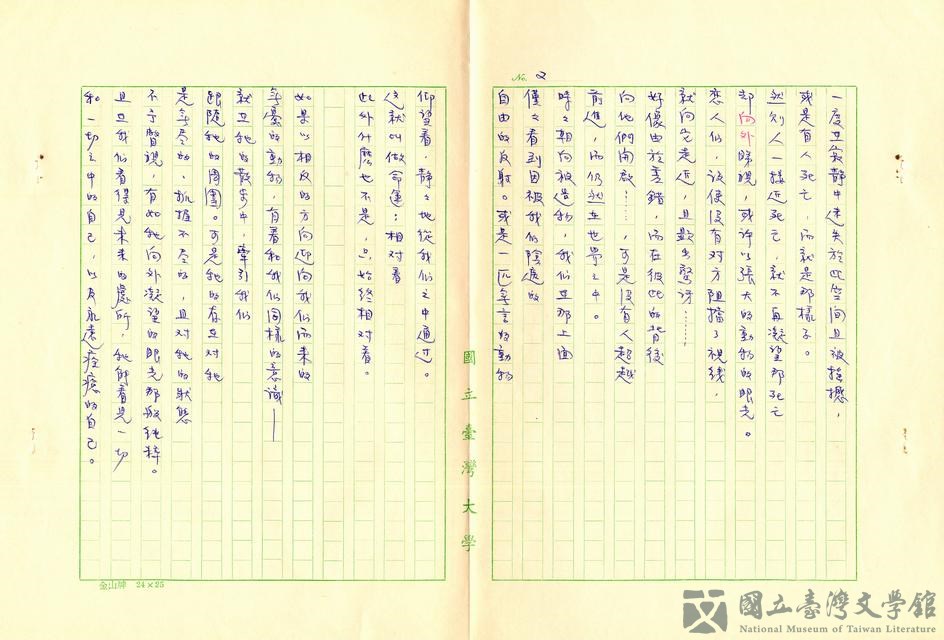 No. 2
一度在寂靜中迷失於此空间且被摇撼，
或是有人死亡，而就是那樣子。
然则人一接近死亡，就不再凝望那死亡
却向外睇視，或许以張大的動物的眼光。
恋人们，设使没有对方阻擋了視线，
就向它走近，且顯出驚讶……
好像由於差錯，而在彼此的背後
向他們開啟……，可是没有人超越
前進，而仍然在世界之中。
時々朝向被造物，我们在那上面
僅々看到因被我们陰遮的
自由的反射。或是一匹無言的動物
仰望着，静々地從我们之中通过。
这就叫做命運：相对着
此外什麼也不是，只始終相对着。
如果以相反的方向迎向我们而来的
無憂的動物，有着和我们同樣的意識——
就在牠的散步中，牽引我们
跟隨牠的周圍。可是牠的存在对牠
是無尽的、抓握不尽的，且对牠的狀態
不予瞥視，有如牠向外凝望的眼光那般純粹。
且在我们看得見未来的處所，牠卻看見一切
和一切之中的自己，以及永遠痊癒的自己。
國立臺灣大學
金山牌 24×25
國立臺灣文學館
National Museum of Taiwan Literature